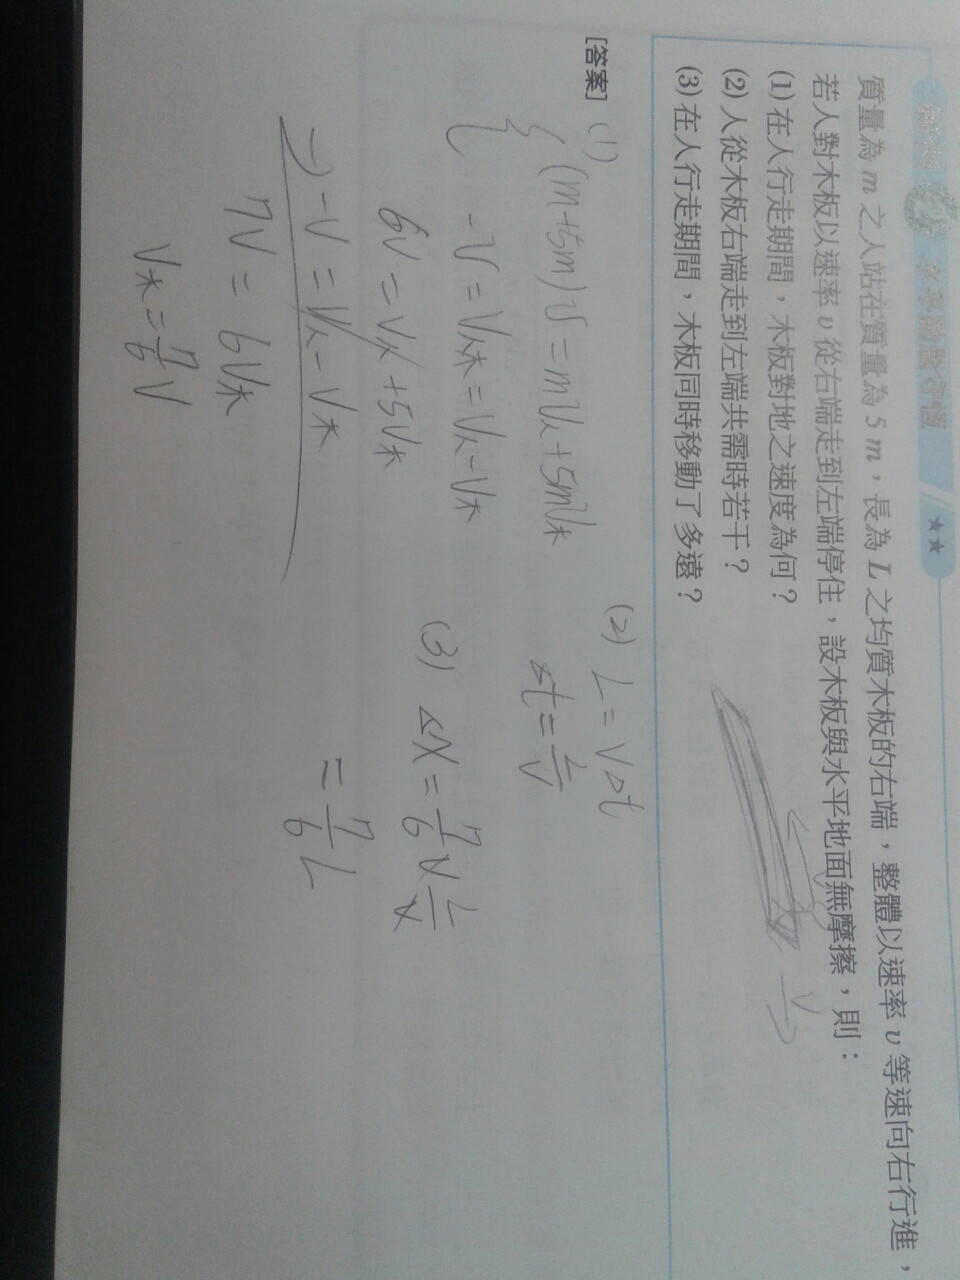 ★★
質量為 m 之人站在質量為 5 m，長為 L 之均質木板的右端，整體以速率 υ 等速向右行進，
若人對木板以速率 υ 從右端走到左端停住，設木板與水平地面無摩擦，則：
(1) 在人行走期間，木板對地之速度為何？
(2) 人從木板右端走到左端共需時若干？
(3) 在人行走期間，木板同時移動了多遠？
[答案]
(1)
(m+5m)v = mV人+5mV木
-v = V人木 = V人-V木
6V = V人+5V木
-) -V = V人-V木
7V = 6V木
V木 = 7/6 V
(2) L = V△t
△t = L/V
(3) △X = 7/6 V L/V
= 7/6 L
V